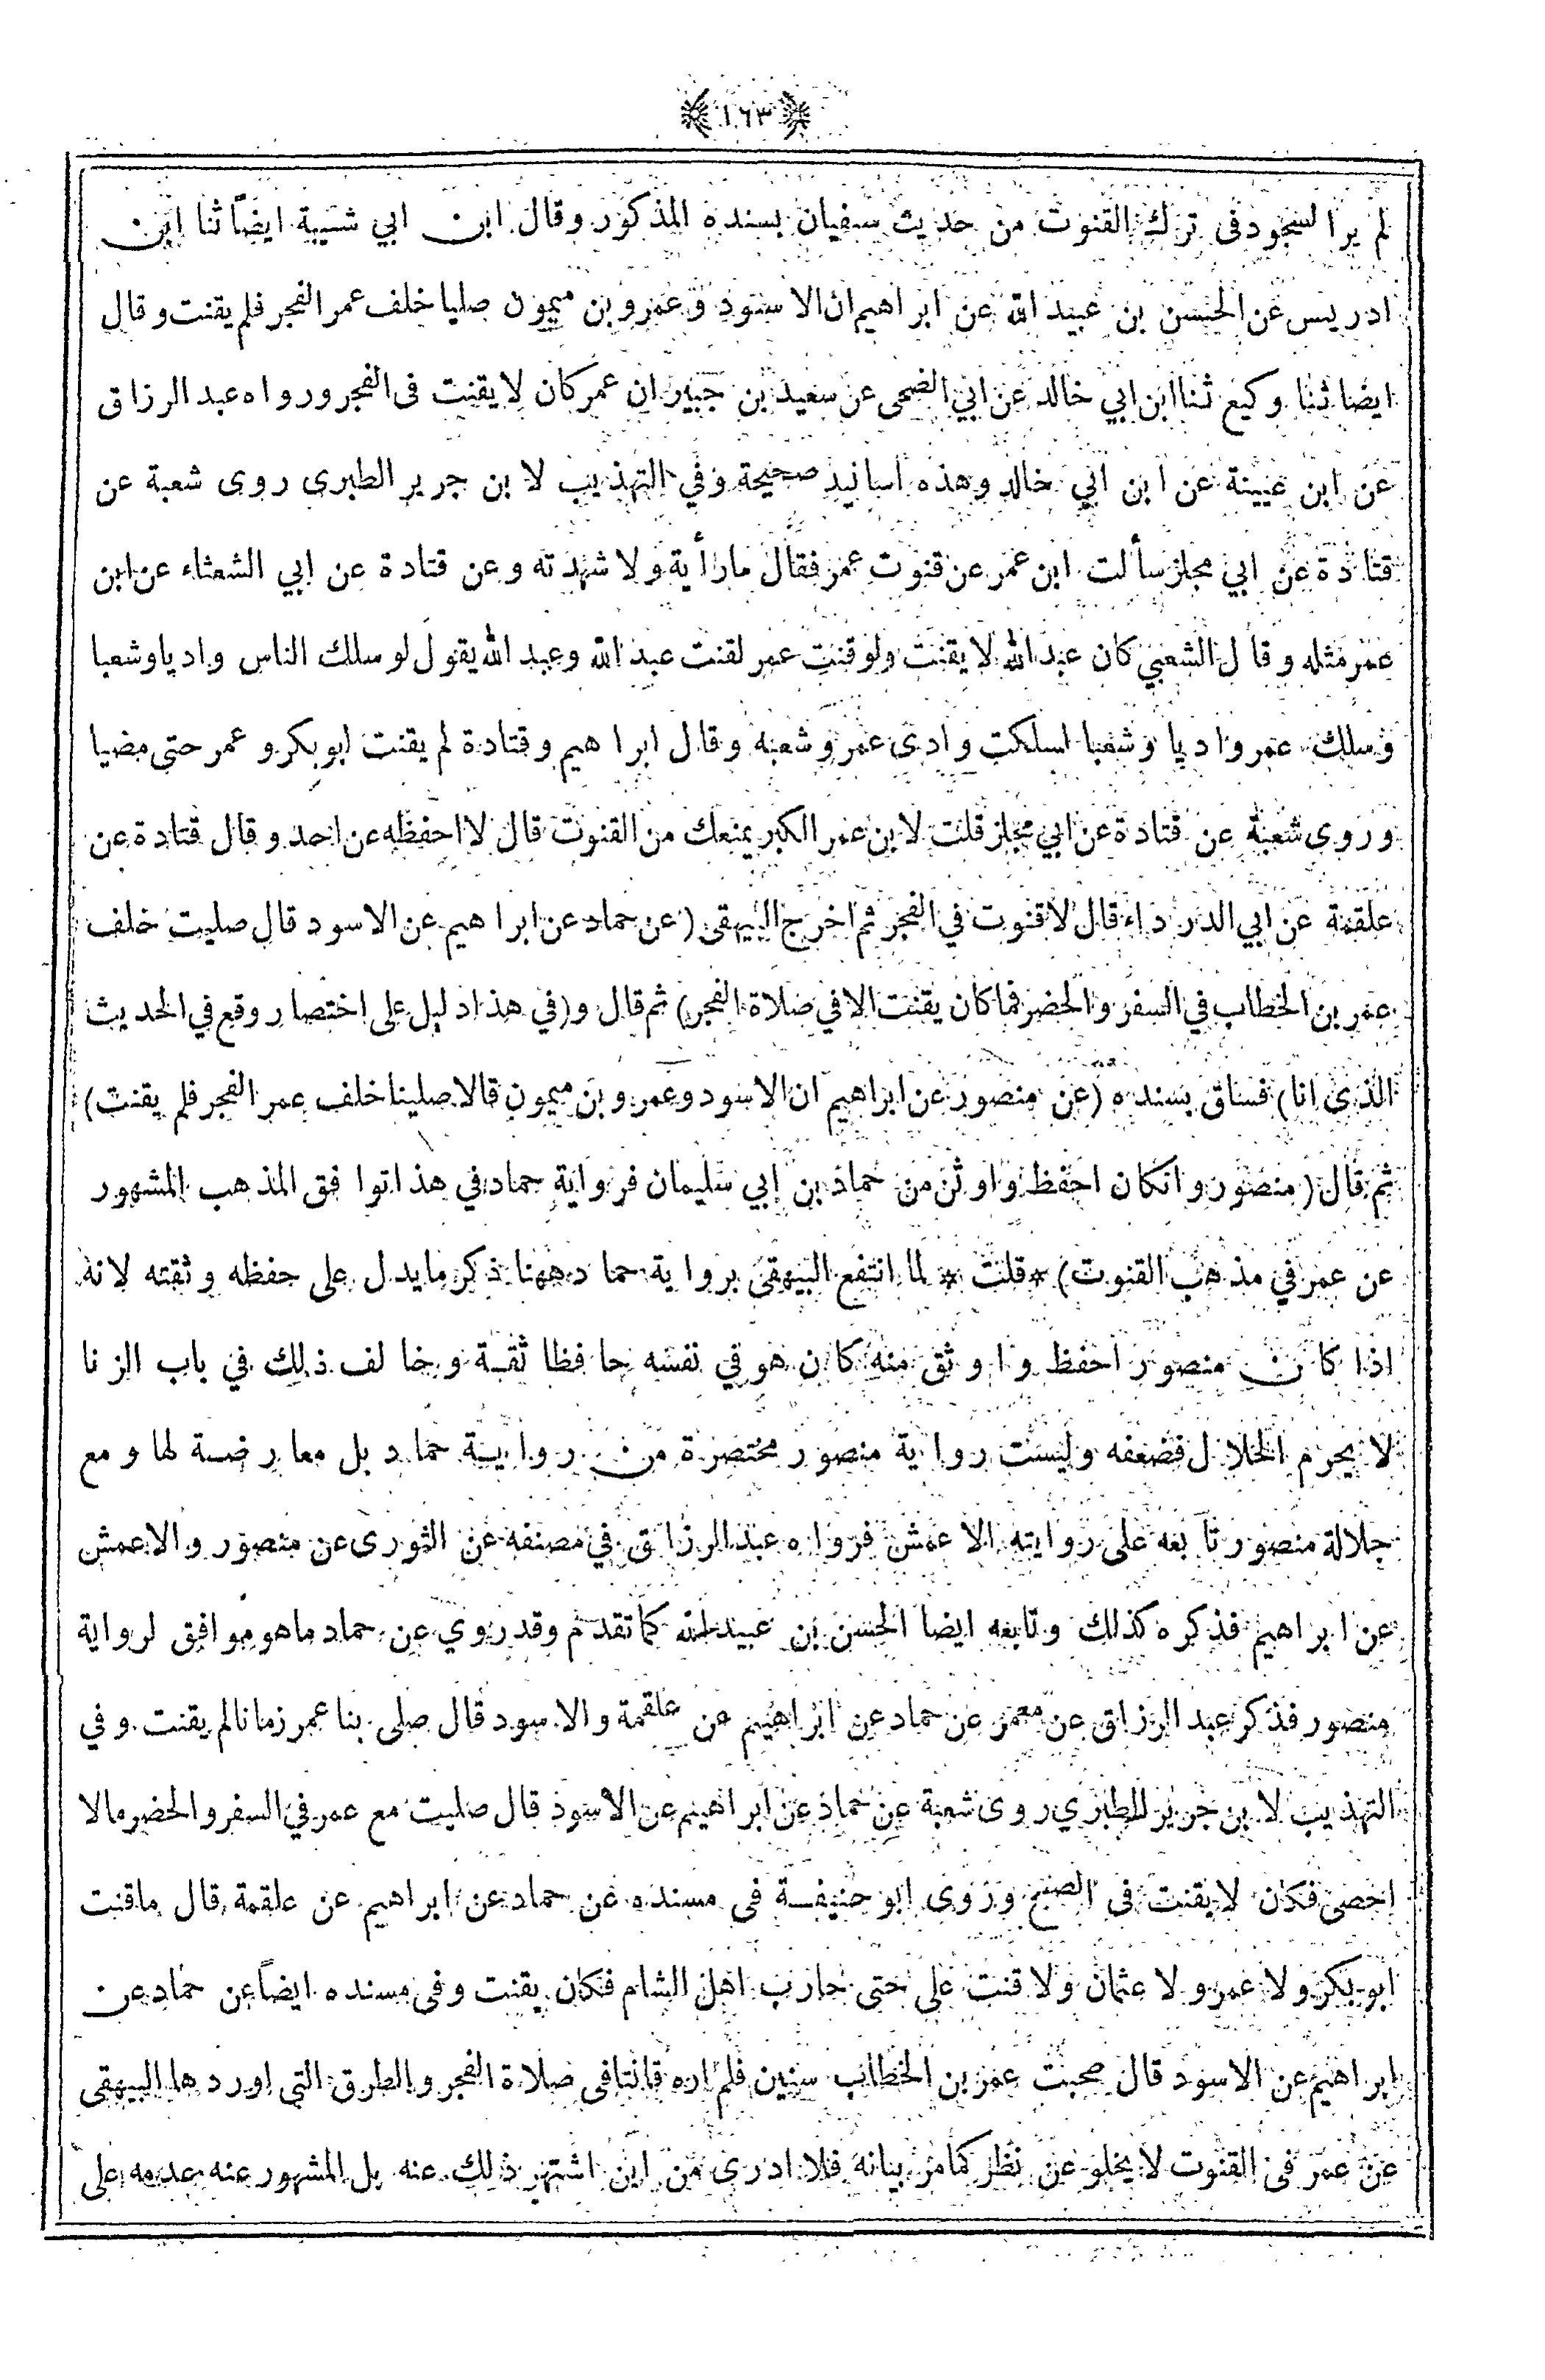 ﴿١٦٣﴾
لم ير السجود فى ترك القنوت من حديث سفيان بسنده المذكور وقال ابن ابي شيبة ايضاً ثنا ابن
ادريس عن الحسن بن عبيد الله عن ابراهيم ان الاسود وعمرو بن ميمون صليا خلف عمر الفجر فلم يقنت وقال
ايضا ثنا وكيع ثنا ابن ابي خالد عن ابي الضحى عن سعيد بن جبير ان عمر كان لا يقنت فى الفجر ورواه عبد الرزاق
عن ابن عيينة عن ابن ابي خالد وهذه اسانيد صحيحة وفي التهذيب لابن جرير الطبرى روى شعبة عن
قتادة عن ابي مجلز سألت ابن عمر عن قنوت عمر فقال ما رأيته ولا شهدته وعن قتادة عن ابي الشعثاء عن ابن
عمر مثله وقال الشعبي كان عبد الله لا يقنت ولو قنت عمر لقنت عبد الله وعبد الله يقول لو سلك الناس واديا وشعبا
وسلك عمر واديا وشعبا اسلكت وادى عمر وشعبه وقال ابراهيم وقتادة لم يقنت ابو بكر وعمر حتى مضيا
وروى شعبة عن قتادة عن ابي مجلز قلت لابن عمر الكبر يمنعك من القنوت قال لا احفظه عن احد وقال قتادة عن
علقمة عن ابي الدرداء قال لا قنوت في الفجر ثم اخرج البيهقى (عن حماد عن ابراهيم عن الاسود قال صليت خلف
عمر بن الخطاب في السفر والحضر فما كان يقنت الا في صلاة الفجر) ثم قال و(في هذا دليل على اختصار وقع في الحديث
الذى انا) فساق بسنده (عن منصور عن ابراهيم ان الاسود وعمرو بن ميمون قالا صلينا خلف عمر الفجر فلم يقنت)
ثم قال (منصور وانكان احفظ واوثق من حماد بن ابي سليمان فرواية حماد في هذا توافق المذهب المشهور
عن عمر في مذهب القنوت) * قلت * لما انتفع البيهقى برواية حماد ههنا ذكر ما يدل على حفظه وثقته لانه
اذا كان منصور احفظ واوثق منه كان هو في نفسه حافظا ثقة وخالف ذلك في باب الزنا
لا يحرم الحلال فضعفه وليست رواية منصور مختصرة من رواية حماد بل معارضة لها ومع
جلالة منصور تابعه على روايته الاعمش فرواه عبد الرزاق في مصنفه عن الثورى عن منصور والاعمش
عن ابراهيم فذكره كذلك وتابعه ايضا الحسن بن عبيد الله كما تقدم وقد روي عن حماد ما هو موافق لرواية
منصور فذكر عبد الرزاق عن معمر عن حماد عن ابراهيم عن علقمة والاسود قال صلى بنا عمر زمانا لم يقنت وفي
التهذيب لابن جرير الطبري روى شعبة عن حماد عن ابراهيم عن الاسود قال صليت مع عمر في السفر والحضر مالا
احصى فكان لا يقنت فى الصبح وروى ابو حنيفة فى مسنده عن حماد عن ابراهيم عن علقمة قال ما قنت
ابو بكر ولا عمر ولا عثمان ولا قنت على حتى حارب اهل الشام فكان يقنت وفى مسنده ايضاً عن حماد عن
ابراهيم عن الاسود قال صحبت عمر بن الخطاب سنين فلم اره قانتا فى صلاة الفجر والطرق التى اوردها البيهقى
عن عمر فى القنوت لا يخلو عن نظر كما مر بيانه فلا ادرى من اين اشتهر ذلك عنه بل المشهور عنه عدمه على